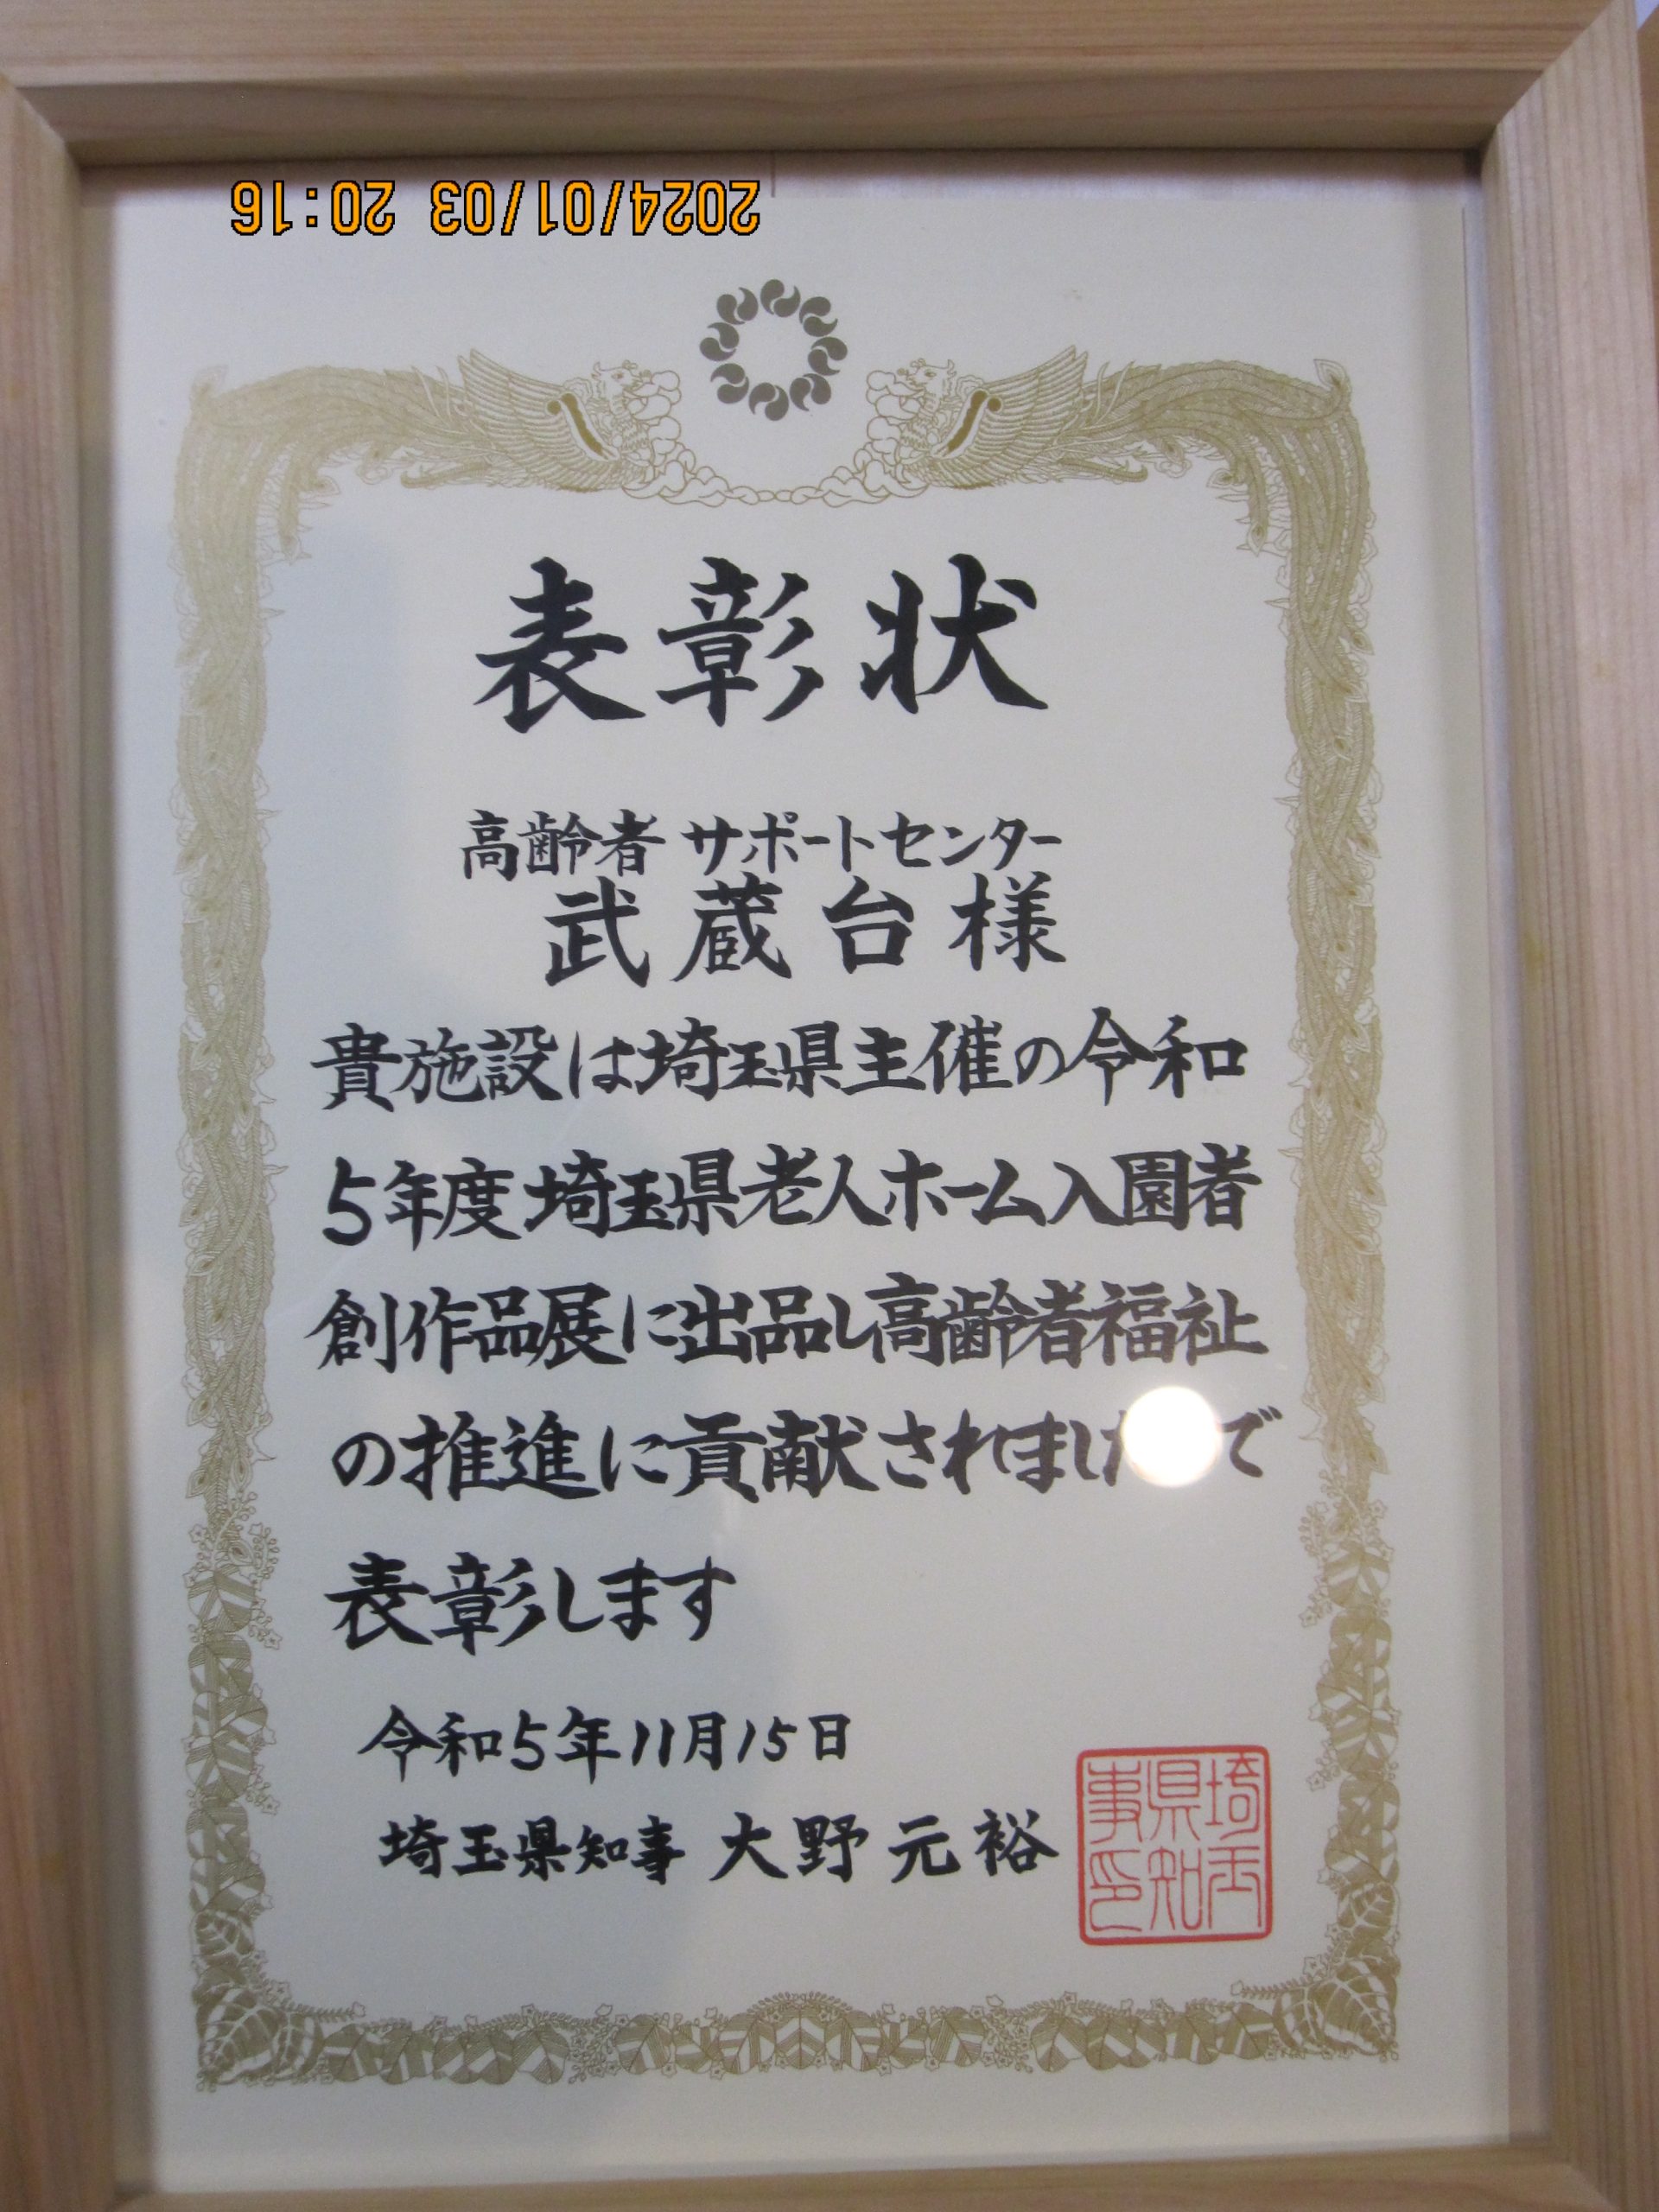 2024/01/03 20:16
表彰状
高齢者 サポートセンター
武蔵台様
貴施設は埼玉県主催の令和
5年度埼玉県老人ホーム入園者
創作品展に出品し高齢者福祉
の推進に貢献されました で
表彰します
令和5年11月15日
埼玉県知事 大野元裕
埼玉
県知
事印